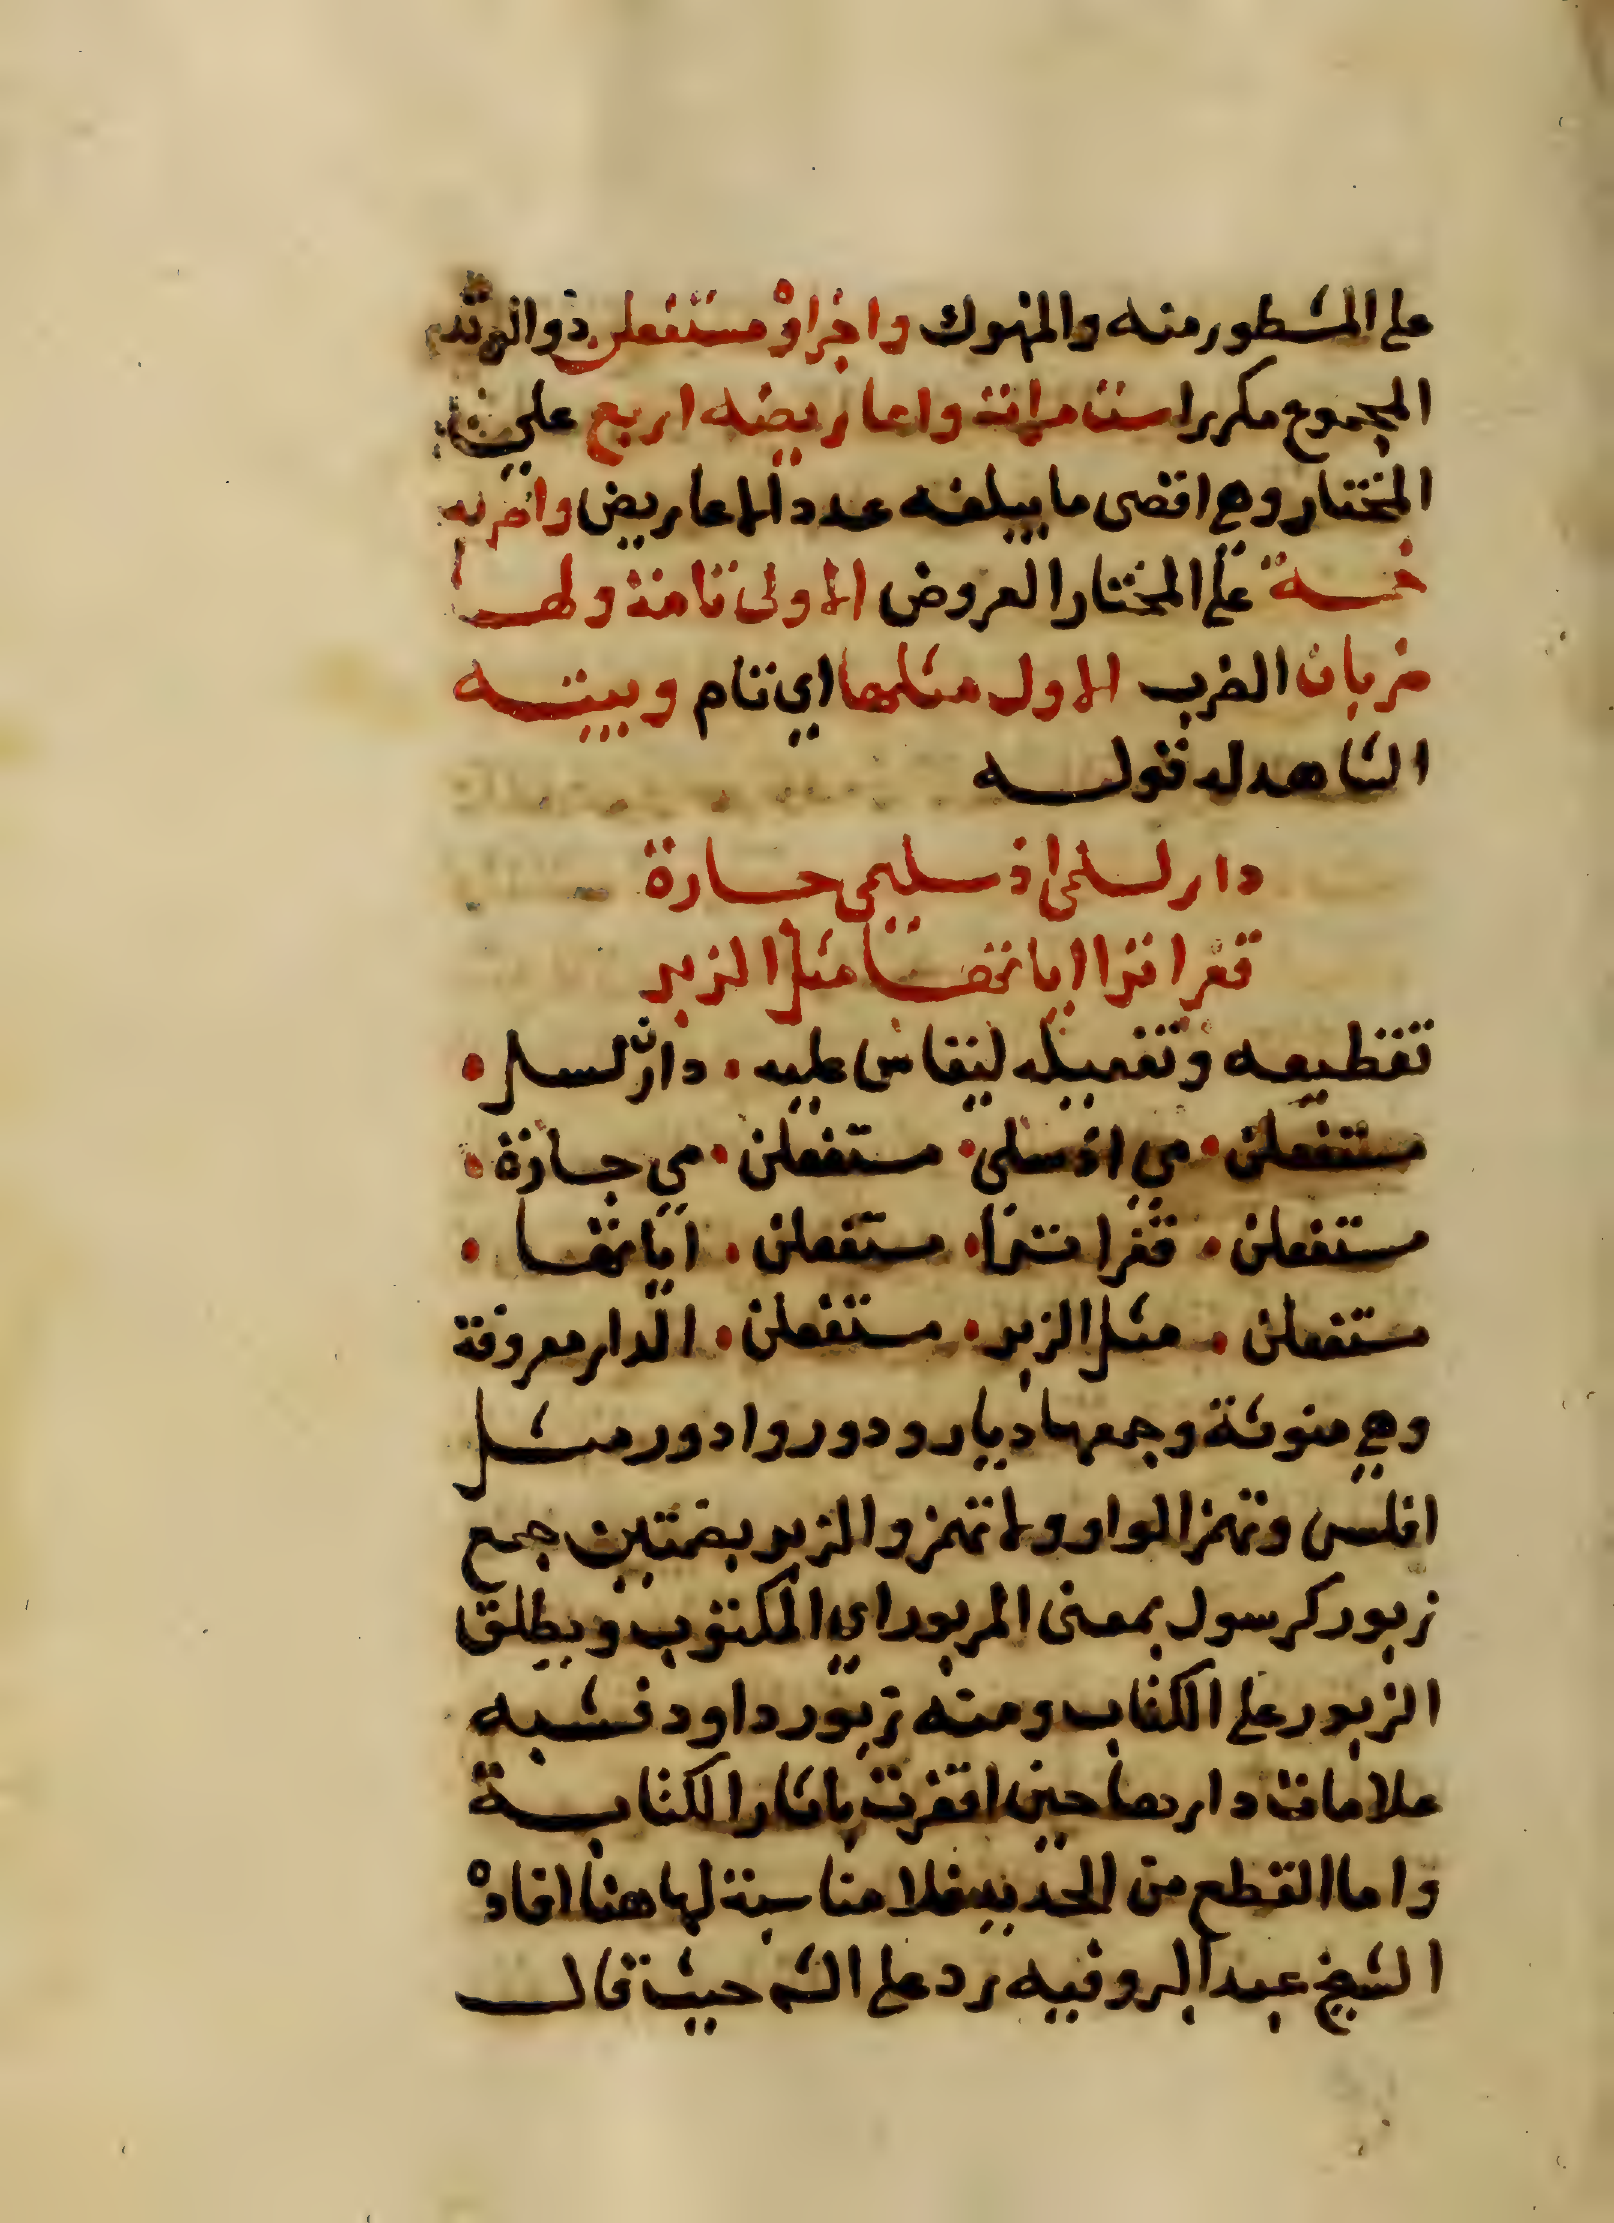 على المشطور منه والمنهوك واجزاوه مستفعلن ذو الوتد
المجموع مكررا ست مرات واعاريضه اربع على
المختار وهي اقصى ما يبلغه عدد الاعاريض واضربه
خمسة على المختار العروض الاولى تامة ولهــا
ضربان الضرب الاول مثلها اي تام وبيتــه
الشاهد له قولــه
دار لسلمى اذ سليمى جــارة
قفرا ترا اياتهــا مثل الزبر
تقطيعه وتفعيله ليقاس عليه • دارن لسل •
مستفعلن • مي اذ سلي • مستفعلن • مي جارة •
مستفعلن • قفرا ترا • مستفعلن • اياتهــا •
مستفعلن • مثل الزبر • مستفعلن • الدار معروفة
وهي مونثة وجمعها ديار ودور وادور مثــل
افلس وتهمز الواو ولا تهمز والزبر بضمتين جمع
زبور كرسول بمعنى المزبور اي المكتوب ويطلق
الزبور على الكتاب ومنه زبور داود فشبه
علامات دارها حين اقفرت باثار الكتابــة
واما القطع من الحديد فلا مناسبة لها هنا افاده
الشيخ عبد البر وفيه رد على الش حيث قالــ